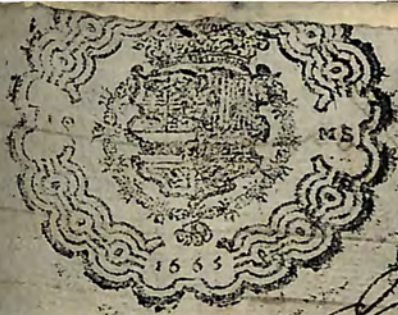 10 MS
1665